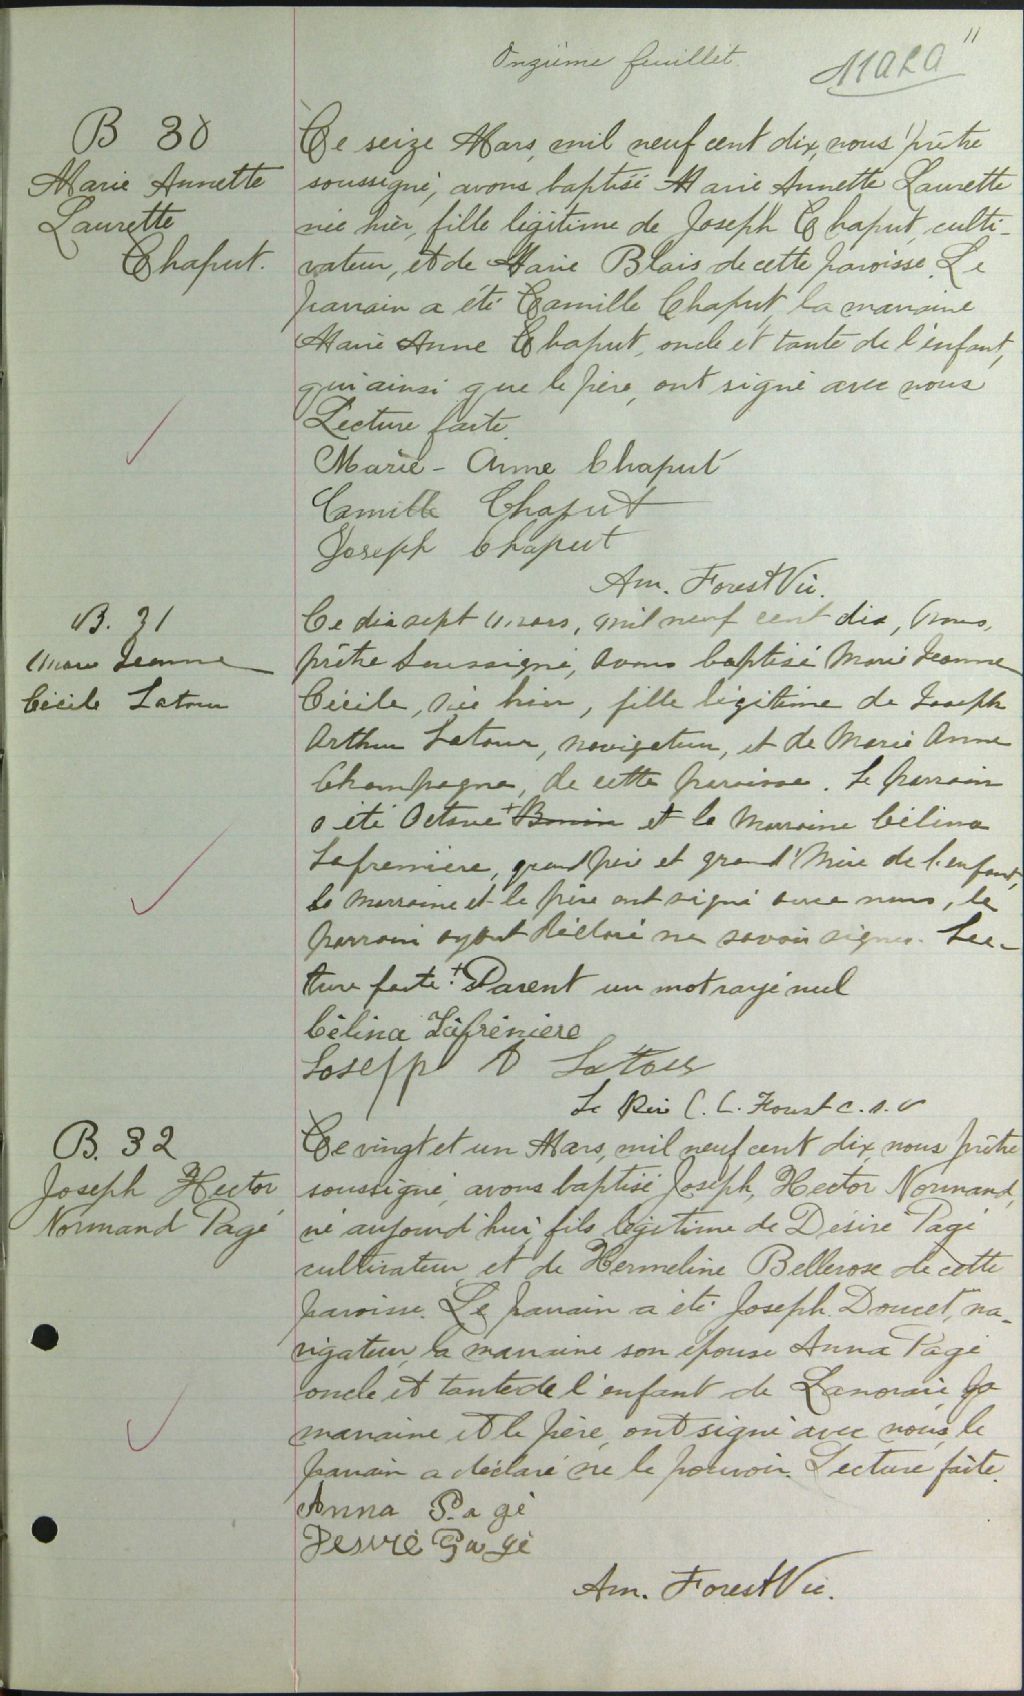 Onzième feuillet.
11
B 30
Marie Annette
Laurette
Chaput.
Ce seize Mars, mil neuf cent dix, nous prêtre
soussigné, avons baptisé Marie Annette Laurette
née hier, fille légitime de Joseph Chaput, culti-
vateur, et de Marie Blais de cette paroisse. Le
parrain a été Camille Chaput, la marraine
Marie Anne Chaput, oncle et tante de l'enfant,
qui ainsi que le père, ont signé avec nous
Lecture faite.
Marie-Anne Chaput
Camille Chaput
Joseph Chaput
Am. Forest Vic.
B. 31
Marie Jeanne
Cécile Latour
Ce dix sept mars, mil neuf cent dix, Nous,
prêtre soussigné, avons baptisé Marie Jeanne
Cécile, née hier, fille légitime de Joseph
Arthur Latour, navigateur, et de Marie Anne
Champagne, de cette paroisse. Le parrain
a été Octave + et la Marraine Célina
Lafrenière, grand père et grand'Mère de l'enfant,
la marraine et le père ont signé avec nous, le
parrain ayant déclaré ne savoir signer. Lec-
ture faite. + Parent un mot rayé nul
Célina Lafrénière
Joseph A Latour
Le Père C. L. Forest c.s.v
B. 32
Joseph Hector
Normand Pagé
Ce vingt et un Mars, mil neuf cent dix, nous prêtre
soussigné, avons baptisé Joseph, Hector Normand,
né aujourd'hui, fils légitime de Désiré Pagé
cultivateur et de Hermeline Bellerose de cette
paroisse. Le parrain a été Joseph Doucet, na-
vigateur, la marraine son épouse Anna Pagé
oncle et tante de l'enfant de Lanoraie, La
marraine et le père, ont signé avec nous, le
parrain a déclaré ne le pouvoir. Lecture faite.
Anna Pagé
Desiré Pagé
Am. Forest Vic.